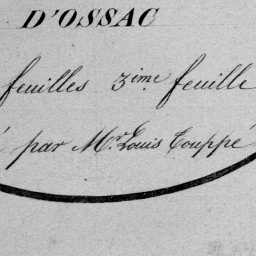 D'OSSAC
feuilles 3ime. feuille
par Mr. Louis Touppé